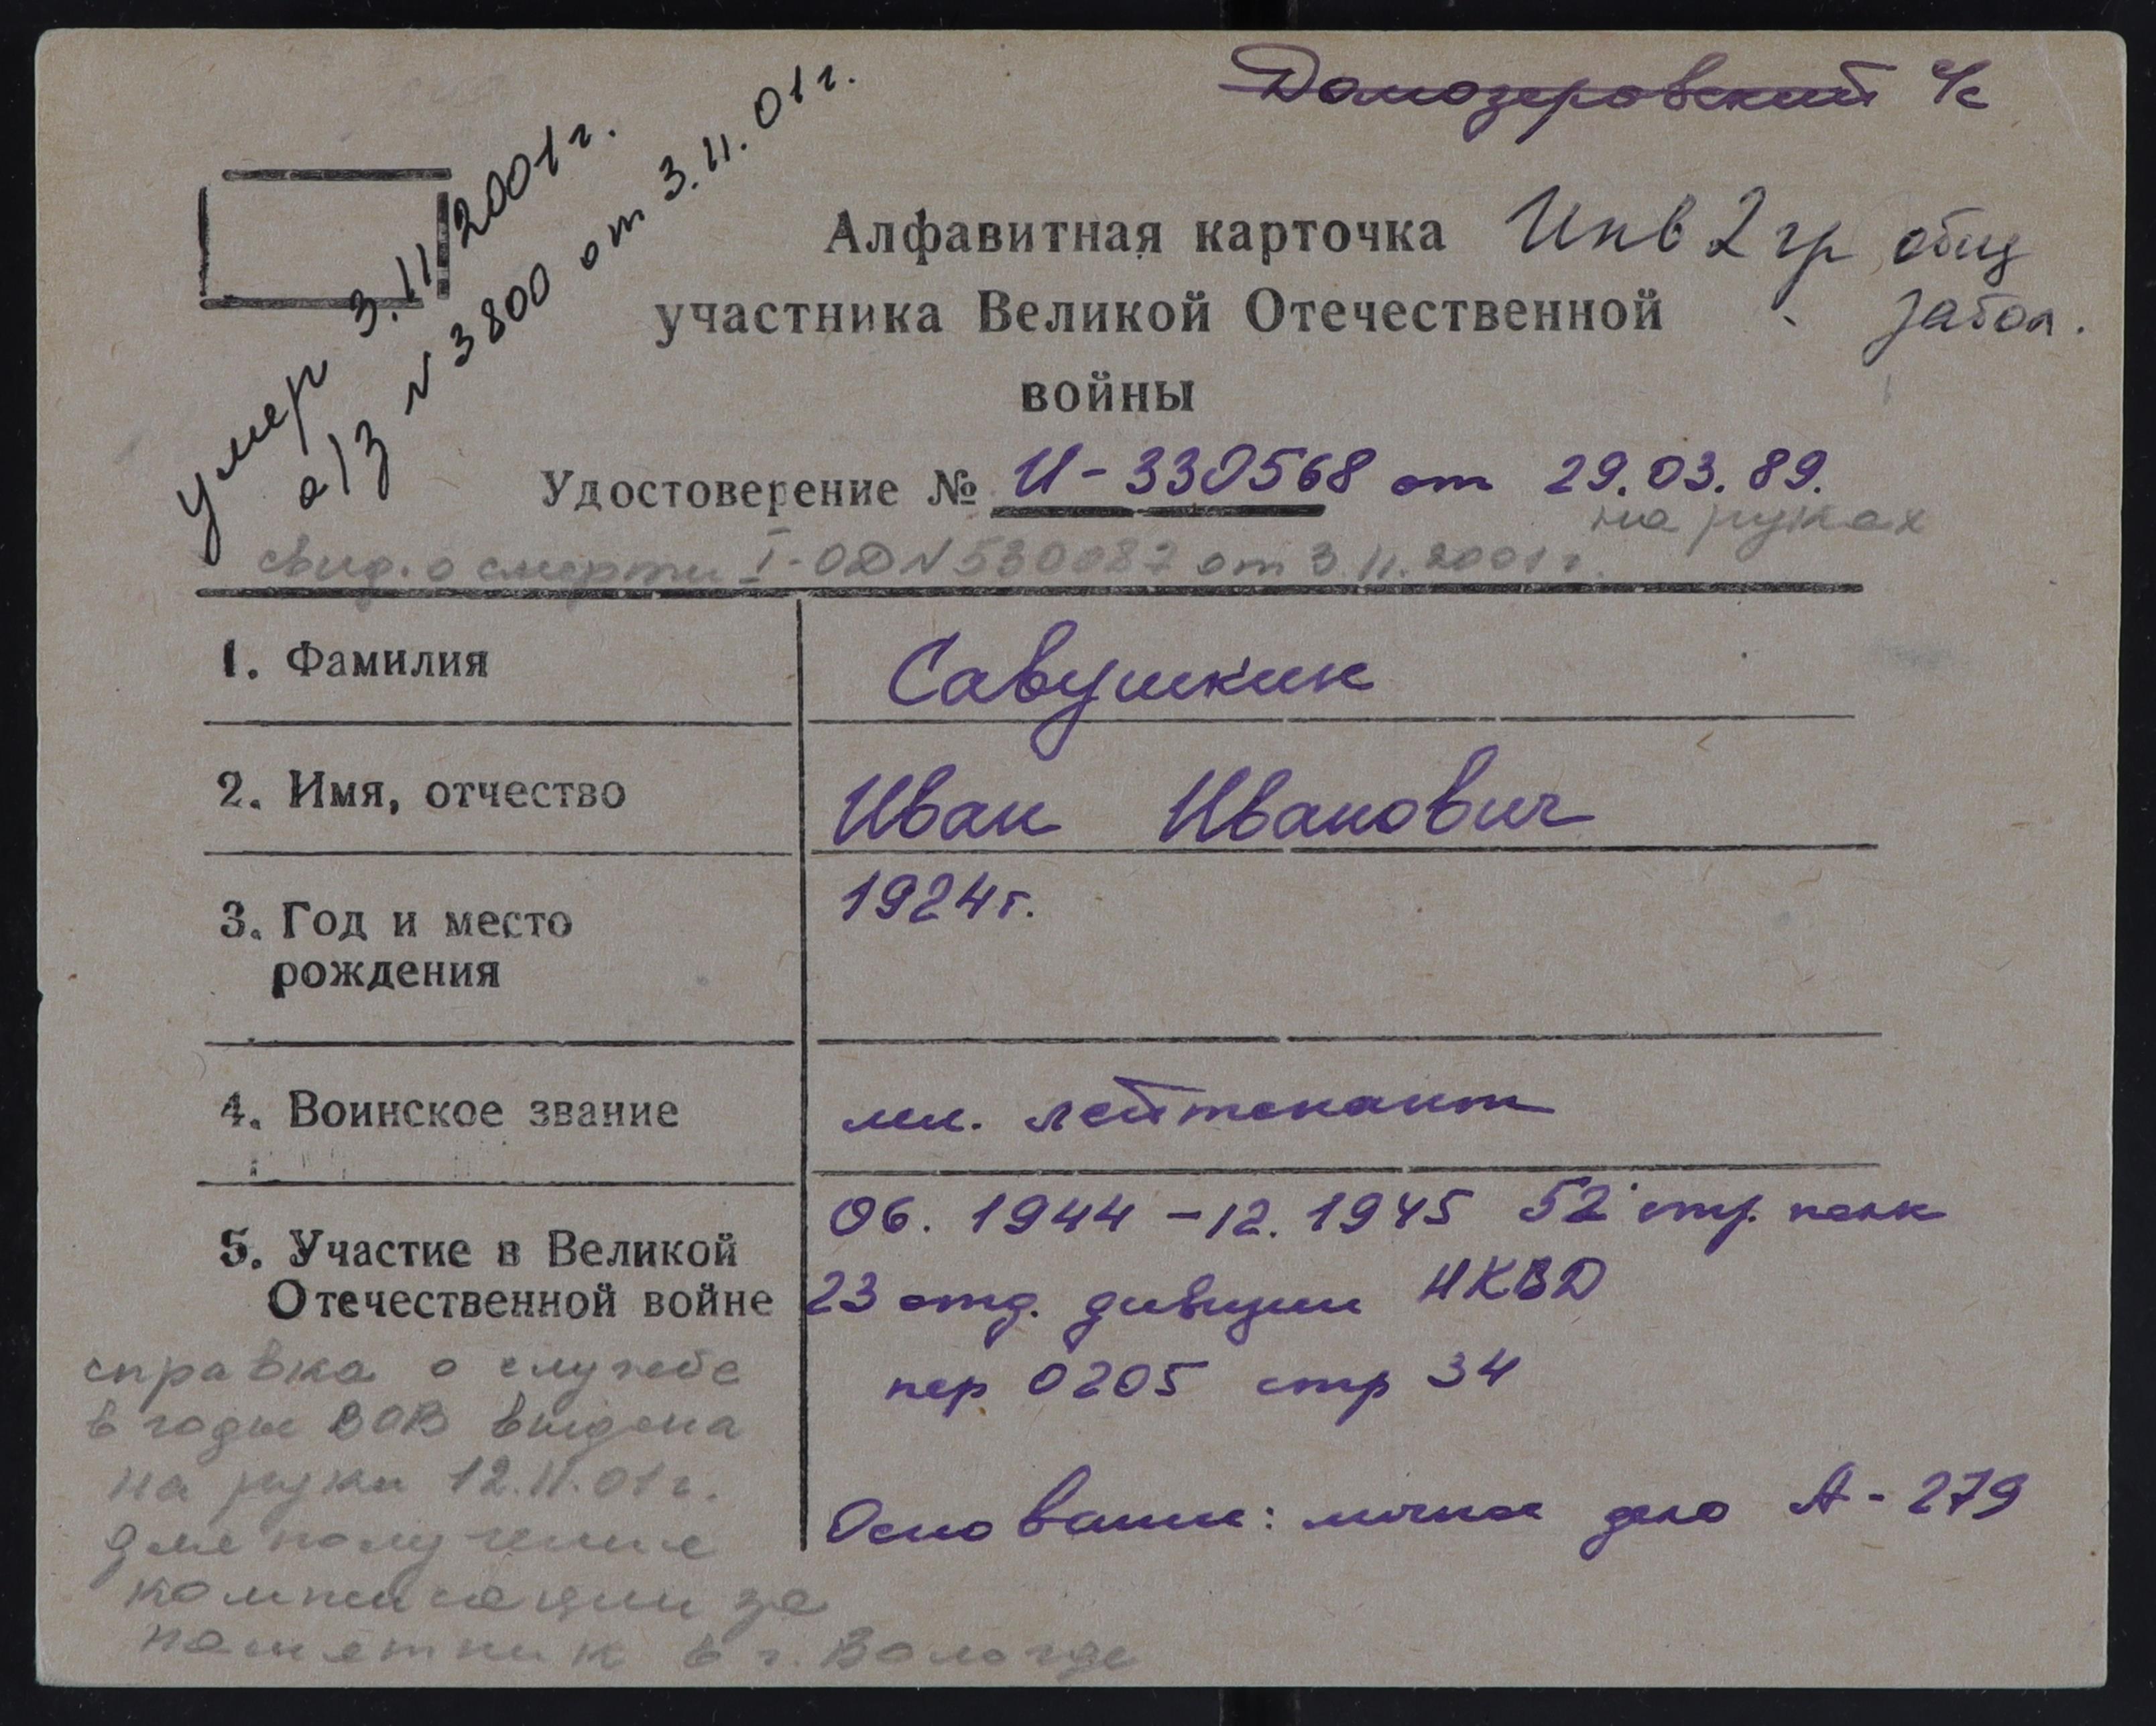 Домозеровский с/с
умер 3.11/2001 г.
а/з № 3800 от 3.11.01 г.
Алфавитная карточка Инв 2 гр общ
участника Великой Отечественной забол.
войны
Удостоверение № И-330568 от 29.03.89.
на руках
свид. о смерти I-ОД № 530087 от 3.11.2001 г.
1. Фамилия Савушкин
2. Имя, отчество Иван Иванович
3. Год и место 1924 г.
рождения
4. Воинское звание мл. лейтенант
06. 1944 - 12. 1945 52 стр. полк
5. Участие в Великой
Отечественной войне 23 отд. дивизии НКВД
справка о службе
пер 0205 стр 34
в годы ВОВ выдана
на руки 12.11.01 г.
Основание: личное дело А-279
для получения
компенсации за
памятник в г. Вологде